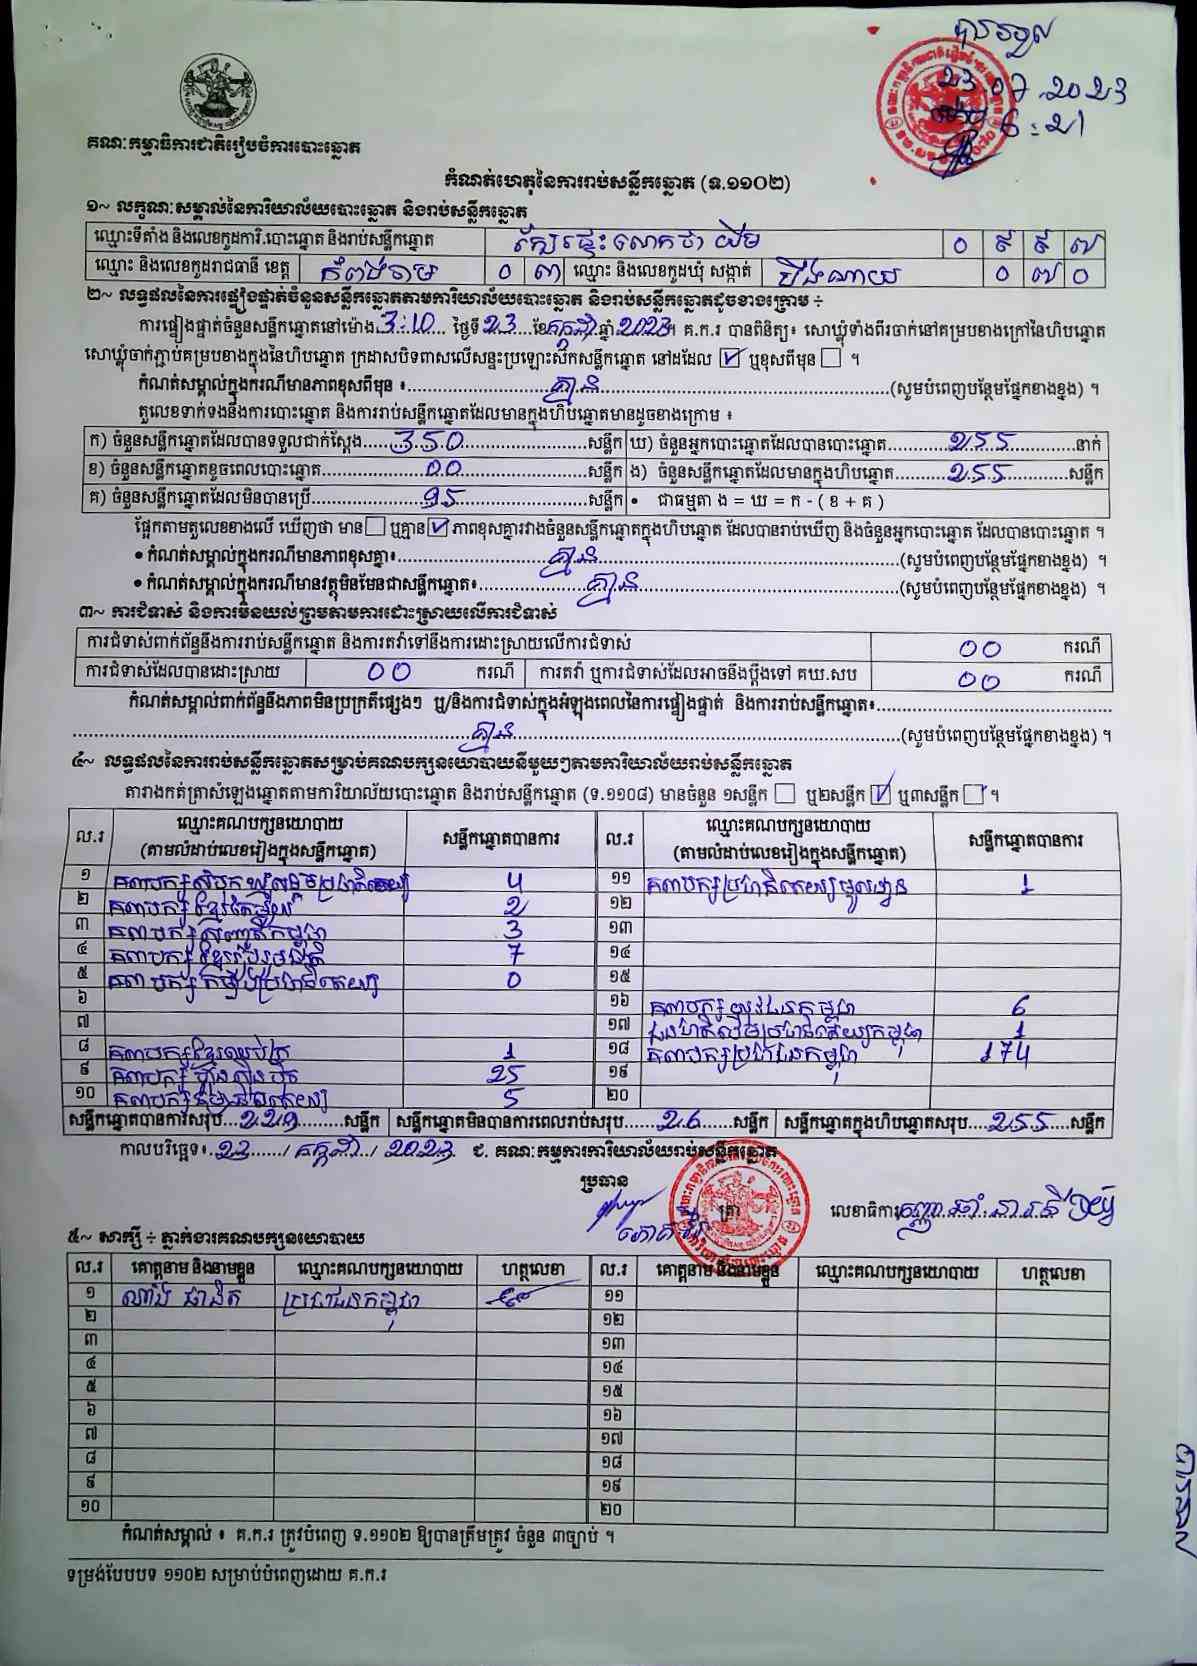 បានចូល
23.07.2023
6:21
គណៈកម្មាធិការជាតិរៀបចំការបោះឆ្នោត
កំណត់ហេតុនៃការរាប់សន្លឹកឆ្នោត (ទ.១១០២)
១~ លក្ខណៈសម្គាល់នៃការិយាល័យបោះឆ្នោត និងរាប់សន្លឹកឆ្នោត
ឈ្មោះទីតាំង និងលេខកូដការិ.បោះឆ្នោត និងរាប់សន្លឹកឆ្នោត ក្បែរផ្ទះលោកជា ឃឹម ០ ៩ ៩ ៧
ឈ្មោះ និងលេខកូដរាជធានី ខេត្ត កំពង់ចាម ០ ៣ ឈ្មោះ និងលេខកូដឃុំ សង្កាត់ បឹងណាយ ០ ៧ ០
២~ លទ្ធផលនៃការផ្ទៀងផ្ទាត់ចំនួនសន្លឹកឆ្នោតតាមការិយាល័យបោះឆ្នោត និងរាប់សន្លឹកឆ្នោតដូចខាងក្រោម ÷
ការផ្ទៀងផ្ទាត់ចំនួនសន្លឹកឆ្នោតនៅម៉ោង 3:10 ថ្ងៃទី 23 ខែ កក្កដា ឆ្នាំ 2023 ។ គ.ក.រ បានពិនិត្យ៖ សោឃ្លុំទាំងពីរចាក់នៅគម្របខាងក្រៅនៃហិបឆ្នោត
សោឃ្លុំចាក់ភ្ជាប់គម្របខាងក្នុងនៃហិបឆ្នោត ក្រដាសបិទពាសលើសន្ទះប្រឡោះសឹកសន្លឹកឆ្នោត នៅដដែល ☑ ឬខុសពីមុន ☐ ។
កំណត់សម្គាល់ក្នុងករណីមានភាពខុសពីមុន ៖ គ្មាន (សូមបំពេញបន្ថែមផ្នែកខាងខ្នង) ។
តួលេខទាក់ទងនឹងការបោះឆ្នោត និងការរាប់សន្លឹកឆ្នោតដែលមានក្នុងហិបឆ្នោតមានដូចខាងក្រោម ៖
ក) ចំនួនសន្លឹកឆ្នោតដែលបានទទួលជាក់ស្តែង 350 សន្លឹក ឃ) ចំនួនអ្នកបោះឆ្នោតដែលបានបោះឆ្នោត 255 នាក់
ខ) ចំនួនសន្លឹកឆ្នោតខូចពេលបោះឆ្នោត 00 សន្លឹក ង) ចំនួនសន្លឹកឆ្នោតដែលមានក្នុងហិបឆ្នោត 255 សន្លឹក
គ) ចំនួនសន្លឹកឆ្នោតដែលមិនបានប្រើ 95 សន្លឹក • ជាធម្មតា ង = ឃ = ក - ( ខ + គ )
ផ្អែកតាមតួលេខខាងលើ ឃើញថា មាន ☐ ឬគ្មាន ☑ ភាពខុសគ្នារវាងចំនួនសន្លឹកឆ្នោតក្នុងហិបឆ្នោត ដែលបានរាប់ឃើញ និងចំនួនអ្នកបោះឆ្នោត ដែលបានបោះឆ្នោត ។
• កំណត់សម្គាល់ក្នុងករណីមានភាពខុសគ្នា៖ គ្មាន (សូមបំពេញបន្ថែមផ្នែកខាងខ្នង) ។
• កំណត់សម្គាល់ក្នុងករណីមានវត្ថុមិនមែនជាសន្លឹកឆ្នោត៖ គ្មាន (សូមបំពេញបន្ថែមផ្នែកខាងខ្នង) ។
៣~ ការជំទាស់ និងការមិនយល់ព្រមតាមការដោះស្រាយលើការជំទាស់
ការជំទាស់ពាក់ព័ន្ធនឹងការរាប់សន្លឹកឆ្នោត និងការតវ៉ាទៅនឹងការដោះស្រាយលើការជំទាស់ 00 ករណី
ការជំទាស់ដែលបានដោះស្រាយ 00 ករណី ការតវ៉ា ឬការជំទាស់ដែលអាចនឹងប្តឹងទៅ គឃ.សប 00 ករណី
កំណត់សម្គាល់ពាក់ព័ន្ធនឹងភាពមិនប្រក្រតីផ្សេងៗ ឬ/និងការជំទាស់ក្នុងអំឡុងពេលនៃការផ្ទៀងផ្ទាត់ និងការរាប់សន្លឹកឆ្នោត៖
គ្មាន (សូមបំពេញបន្ថែមផ្នែកខាងខ្នង) ។
៤~ លទ្ធផលនៃការរាប់សន្លឹកឆ្នោតសម្រាប់គណបក្សនយោបាយនីមួយៗតាមការិយាល័យរាប់សន្លឹកឆ្នោត
តារាងកត់ត្រាសំឡេងឆ្នោតតាមការិយាល័យបោះឆ្នោត និងរាប់សន្លឹកឆ្នោត (ទ.១១០៨) មានចំនួន ១សន្លឹក ☐ ឬ២សន្លឹក ☑ ឬ៣សន្លឹក ☐ ។
ល.រ ឈ្មោះគណបក្សនយោបាយ (តាមលំដាប់លេខរៀងក្នុងសន្លឹកឆ្នោត) សន្លឹកឆ្នោតបានការ ល.រ ឈ្មោះគណបក្សនយោបាយ (តាមលំដាប់លេខរៀងក្នុងសន្លឹកឆ្នោត) សន្លឹកឆ្នោតបានការ
១ គណបក្សសំបុកឃ្មុំសង្គមប្រជាធិបតេយ្យ 4 ១១ គណបក្សប្រជាធិបតេយ្យមូលដ្ឋាន 1
២ គណបក្សខ្មែរតែមួយ 2 ១២
៣ គណបក្សសញ្ជាតិកម្ពុជា 3 ១៣
៤ គណបក្សខ្មែររួបរួមជាតិ 7 ១៤
៥ គណបក្សកម្លាំងប្រជាធិបតេយ្យ 0 ១៥
៦ ១៦ គណបក្សយុវជនកម្ពុជា 6
៧ ១៧ ជនជាតិដើមប្រជាធិបតេយ្យកម្ពុជា 1
៨ គណបក្សខ្មែរឈប់ក្រ 1 ១៨ គណបក្សប្រជាជនកម្ពុជា 174
៩ គណបក្សហ្វ៊ុនស៊ិនប៉ិច 25 ១៩
១០ 5 ២០
សន្លឹកឆ្នោតបានការសរុប 229 សន្លឹក សន្លឹកឆ្នោតមិនបានការពេលរាប់សរុប 26 សន្លឹក សន្លឹកឆ្នោតក្នុងហិបឆ្នោតសរុប 255 សន្លឹក
កាលបរិច្ឆេទ៖ 23 / កក្កដា / 2023 ជ. គណៈកម្មការការិយាល័យរាប់សន្លឹកឆ្នោត
ប្រធាន
ត្រា លេខាធិការ
៥~ សាក្សី ÷ ភ្នាក់ងារគណបក្សនយោបាយ
ល.រ គោត្តនាម និងនាមខ្លួន ឈ្មោះគណបក្សនយោបាយ ហត្ថលេខា ល.រ គោត្តនាម និងនាមខ្លួន ឈ្មោះគណបក្សនយោបាយ ហត្ថលេខា
១ ប្រជាជនកម្ពុជា ១១
២ ១២
៣ ១៣
៤ ១៤
៥ ១៥
៦ ១៦
៧ ១៧
៨ ១៨
៩ ១៩
១០ ២០
កំណត់សម្គាល់ ៖ គ.ក.រ ត្រូវបំពេញ ទ.១១០២ ឱ្យបានត្រឹមត្រូវ ចំនួន ៣ច្បាប់ ។
ទម្រង់បែបបទ ១១០២ សម្រាប់បំពេញដោយ គ.ក.រ